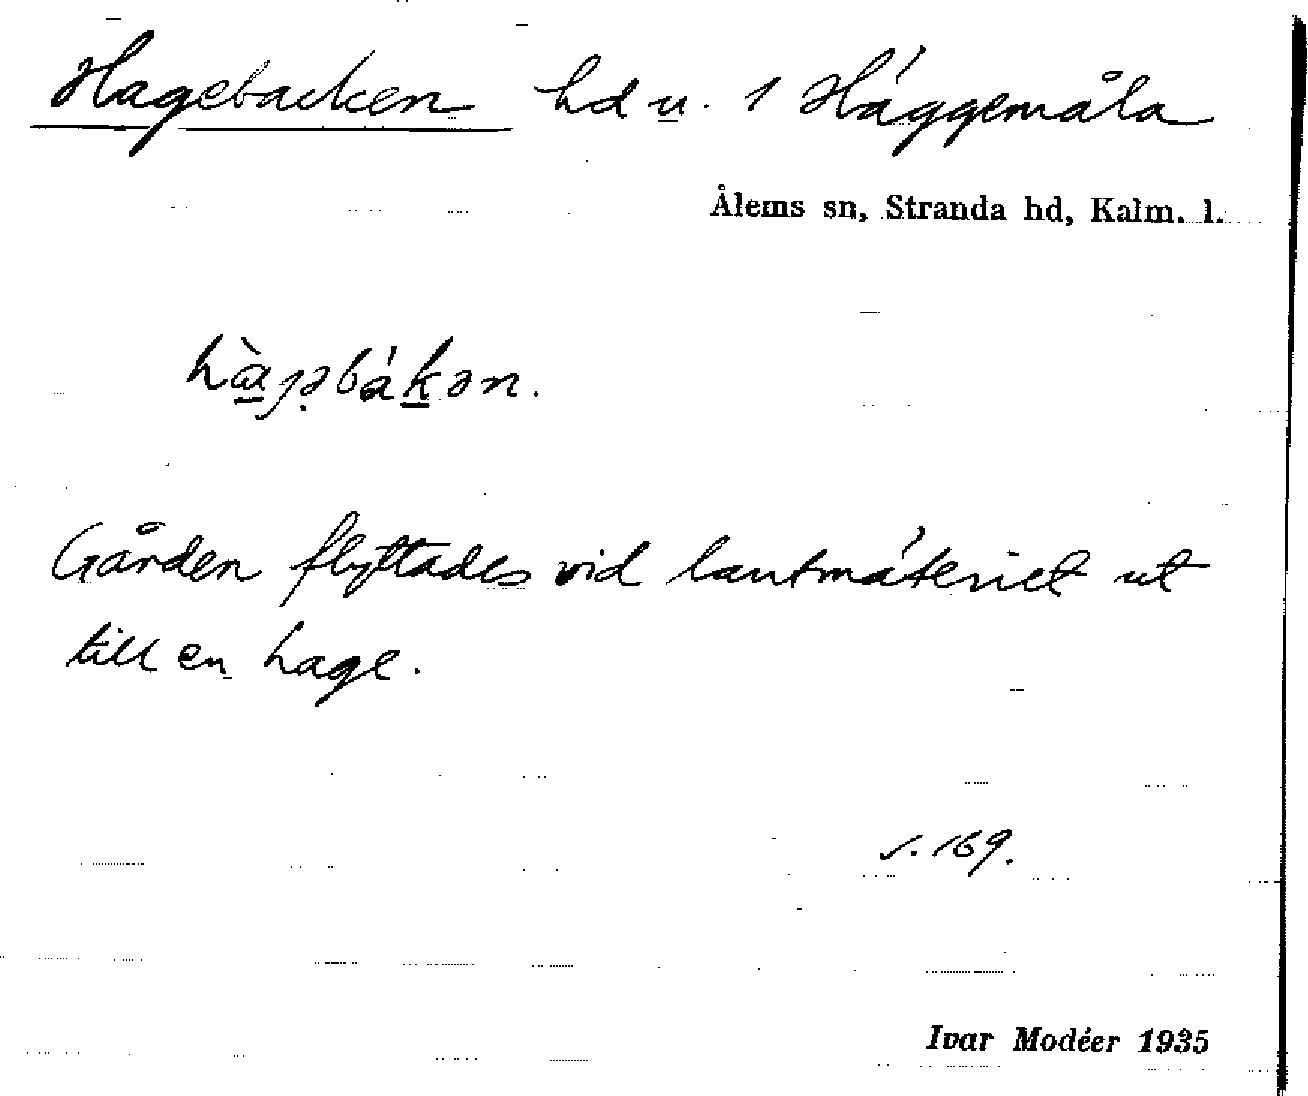 Hagebacken hd u. 1 Häggemåla
Ålems sn, Stranda hd, Kalm. l.
hàgəbákən.
Gården flyttades vid lantmäteriet ut
till en hage.
s. 169.
Ivar Modéer 1935